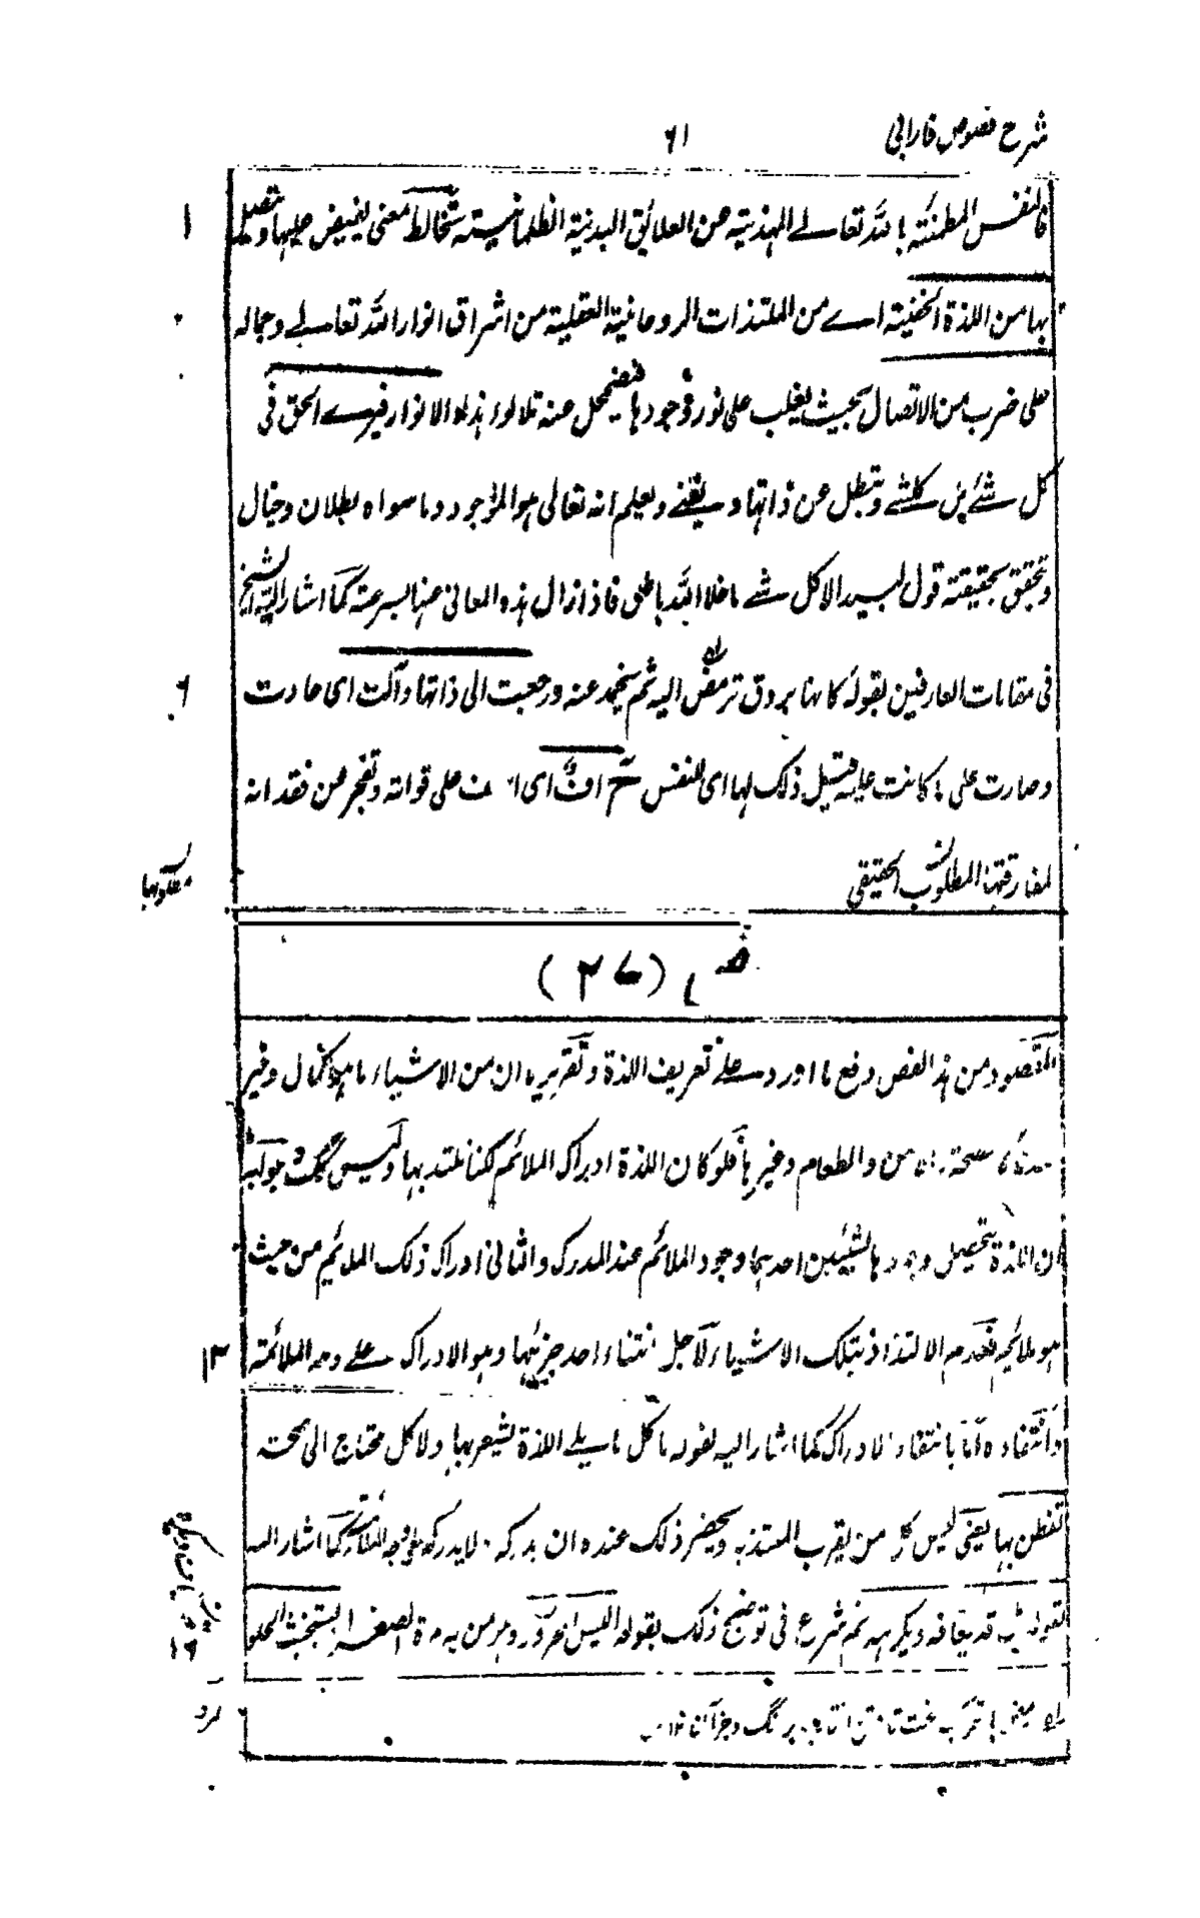 شرح فصوص فارابی
۶۱
فالنفس المطمئنة بالله تعالے المهذبة عن العلائق البدنية الظلمانية ستخالط معنى يفيض عليها و يتصل
۱
بها من اللذة الخفية اے من الملتذات الروحانية العقلية من اشراق انوار الله تعالے وجماله
على ضرب من الاتصال بحيث يغلب على نور وجودها فيضمحل عنه تلالؤ هذه الانوار فيرے الحق فى
كل شئ بل كلشے وتبطل عن ذاتها ويعلم انه تعالى هو الموجود وما سواه بطلان وخيال
وتحقق بحقيقة قول لبيد الا كل شے ما خلا الله باطل فاذا زال هذه المعانى عنها بسرعة كما اشار اليه الشيخ
فى مقامات العارفين بقوله كانها بروق تومض اليه ثم تخمد عنه ورجعت الى ذاتها وآلت اى عادت
۶
وصارت على ما كانت عليه قبيل ذلك لها اى للنفس ح اف اى على فواته وتضجر من فقدانه
لمفارقتها المطلوب الحقيقى
فص (۲۷)
المقصود من هذا الفص دفع ما اورد علے تعريف اللذة وتقريره ان من الاشياء ما هو كمال وخير
كالصحة والامن والطعام وغيرها فلو كان اللذة ادراك الملائم لكنا نلتذ بها وليس كك وجوابه
ان اللذة يتحصل وجودها لشيئين احدهما وجود الملائم عند المدرك والثانى ادراك ذلك الملائم من حيث
هو ملائم فعدم الالتذاذ بتلك الاشياء لاجل انتفاء احد جزئيها وهو الادراك علے وجه الملائمة
۱۳
وانتفاءه اما بانتفاء الادراك كما اشار اليه بقوله ما كل ما يلے اللذة يشعر بها ولا كل محتاج الى صحة
تفطن بها يعنى ليس كل من يقرب المستلذ به ويحضر ذلك عنده ان يدركه لا يدركه على وجه الملائمة كما اشار اليه
بقوله بل قد يعافه ويكرهه ثم شرع فى توضيح ذلك بقوله اليس الممرور وهو من به مرة الصفراء يستخبث الحلو